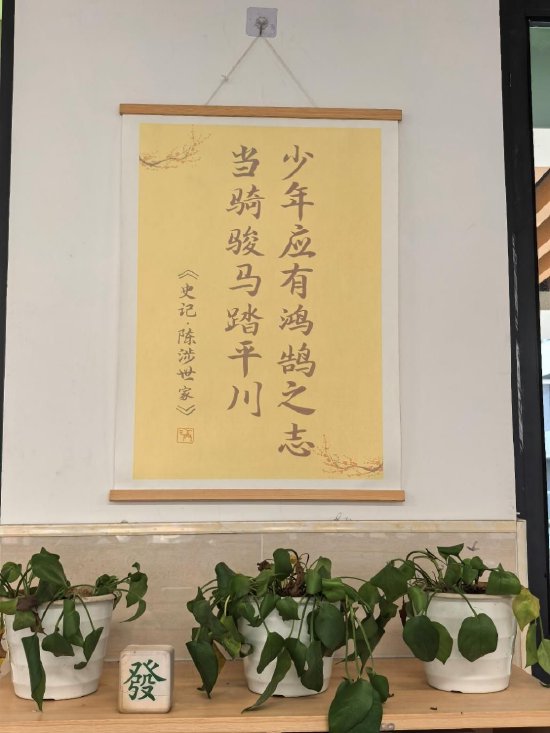 少年应有鸿鹄之志
当骑骏马踏平川
《史记·陈涉世家》
發